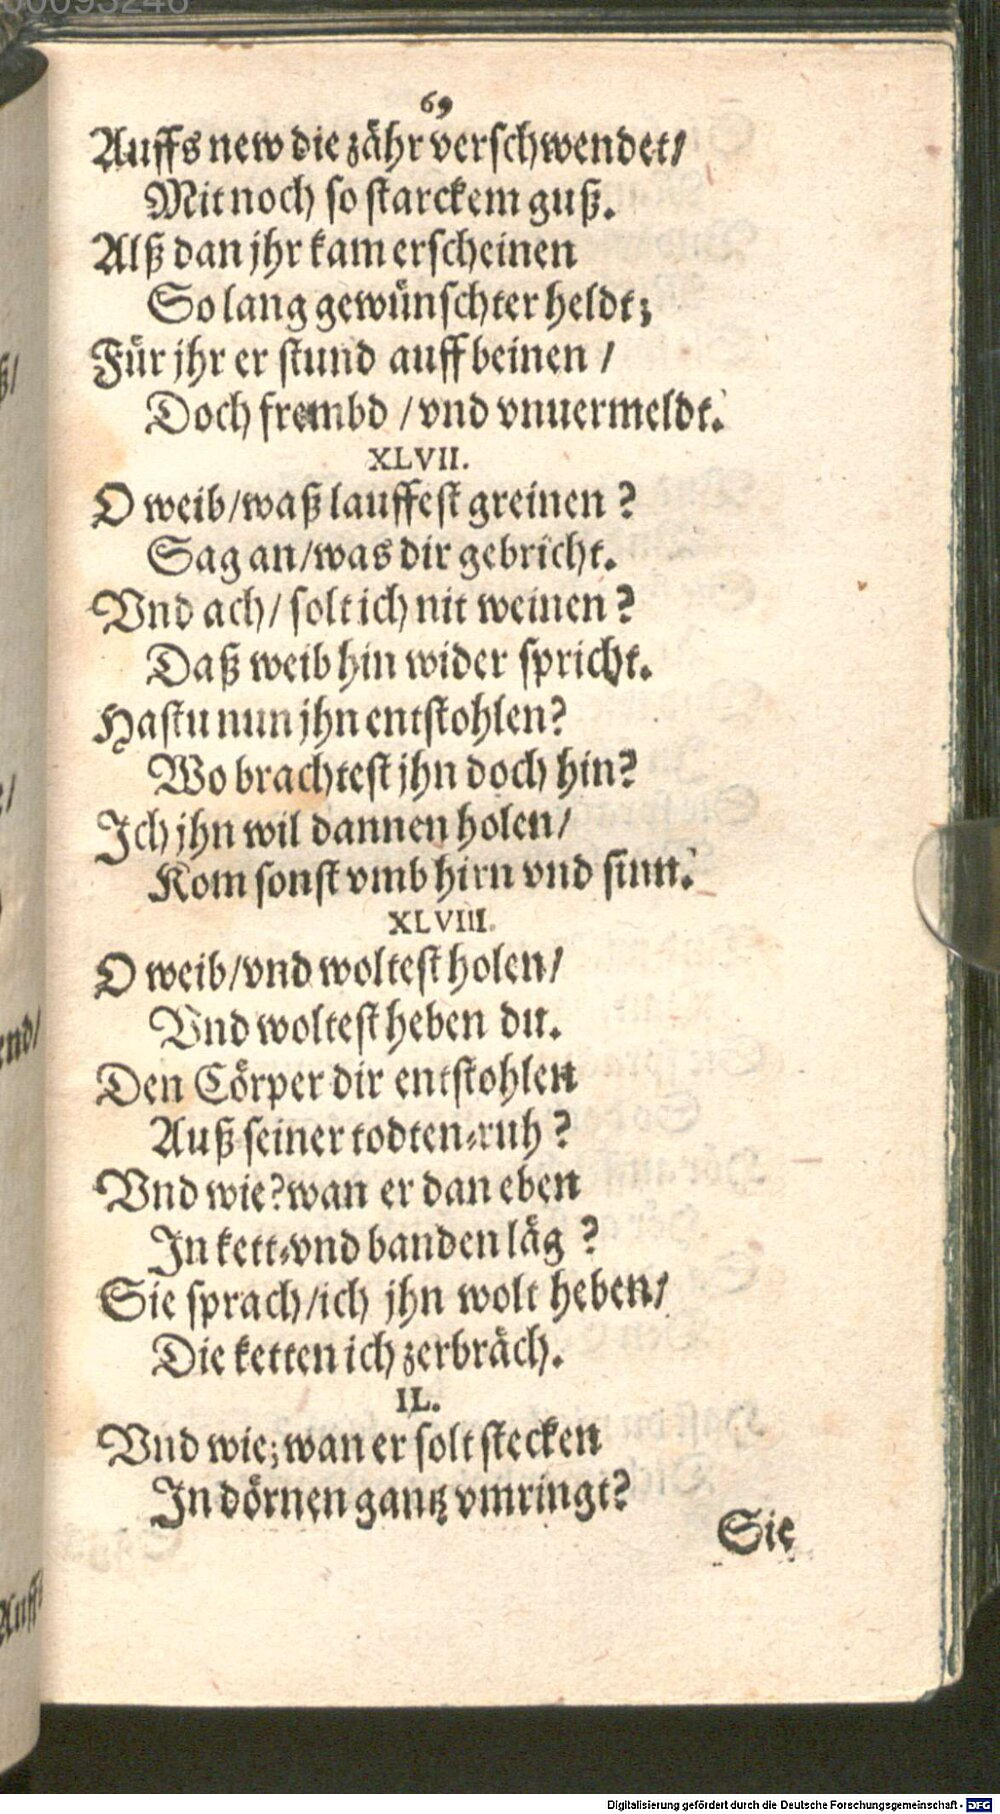 69
Auffs new die zähr verschwendet/
Mit noch so starckem guß.
Alß dan jhr kam erscheinen
So lang gewünschter heldt;
Für jhr er stund auff beinen /
Doch frembd / vnd vnuermeldt.
XLVII.
O weib/waß lauffest greinen?
Sag an/was dir gebricht.
Vnd ach/ solt ich nit weinen?
Daß weib hin wider spricht.
Hastu nun jhn entstohlen?
Wo brachtest jhn doch hin?
Ich jhn wil dannen holen/
Kom sonst vmb hirn vnd sinn.
XLVIII.
O weib/vnd woltest holen/
Vnd woltest heben du.
Den Cörper dir entstohlen
Auß seiner todten-ruh?
Vnd wie? wan er dan eben
In kett-vnd banden läg?
Sie sprach/ich jhn wolt heben/
Die ketten ich zerbräch.
IL.
Vnd wie; wan er solt stecken
In dörnen gantz vmringt?
Sie
Digitalisierung gefördert durch die Deutsche Forschungsgemeinschaft - DFG